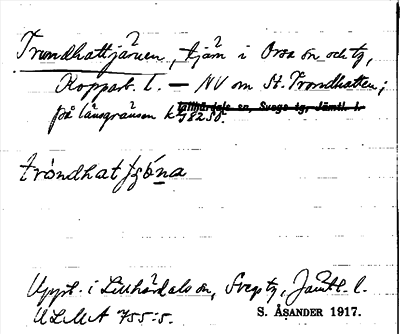 Trondhattjärnen, tjärn i Orsa sn och tg,
Kopparb. l. — NV om St. Trondhatten;
på länsgränsen k 782 SO.
Lillhärdals sn, Svegs tg, Jämtl. l.
tròndhat
Uppt. i Lillhärdals sn, Svegs tg, Jämtl. l.
ULMA 755:5. S. ÅSANDER 1917.